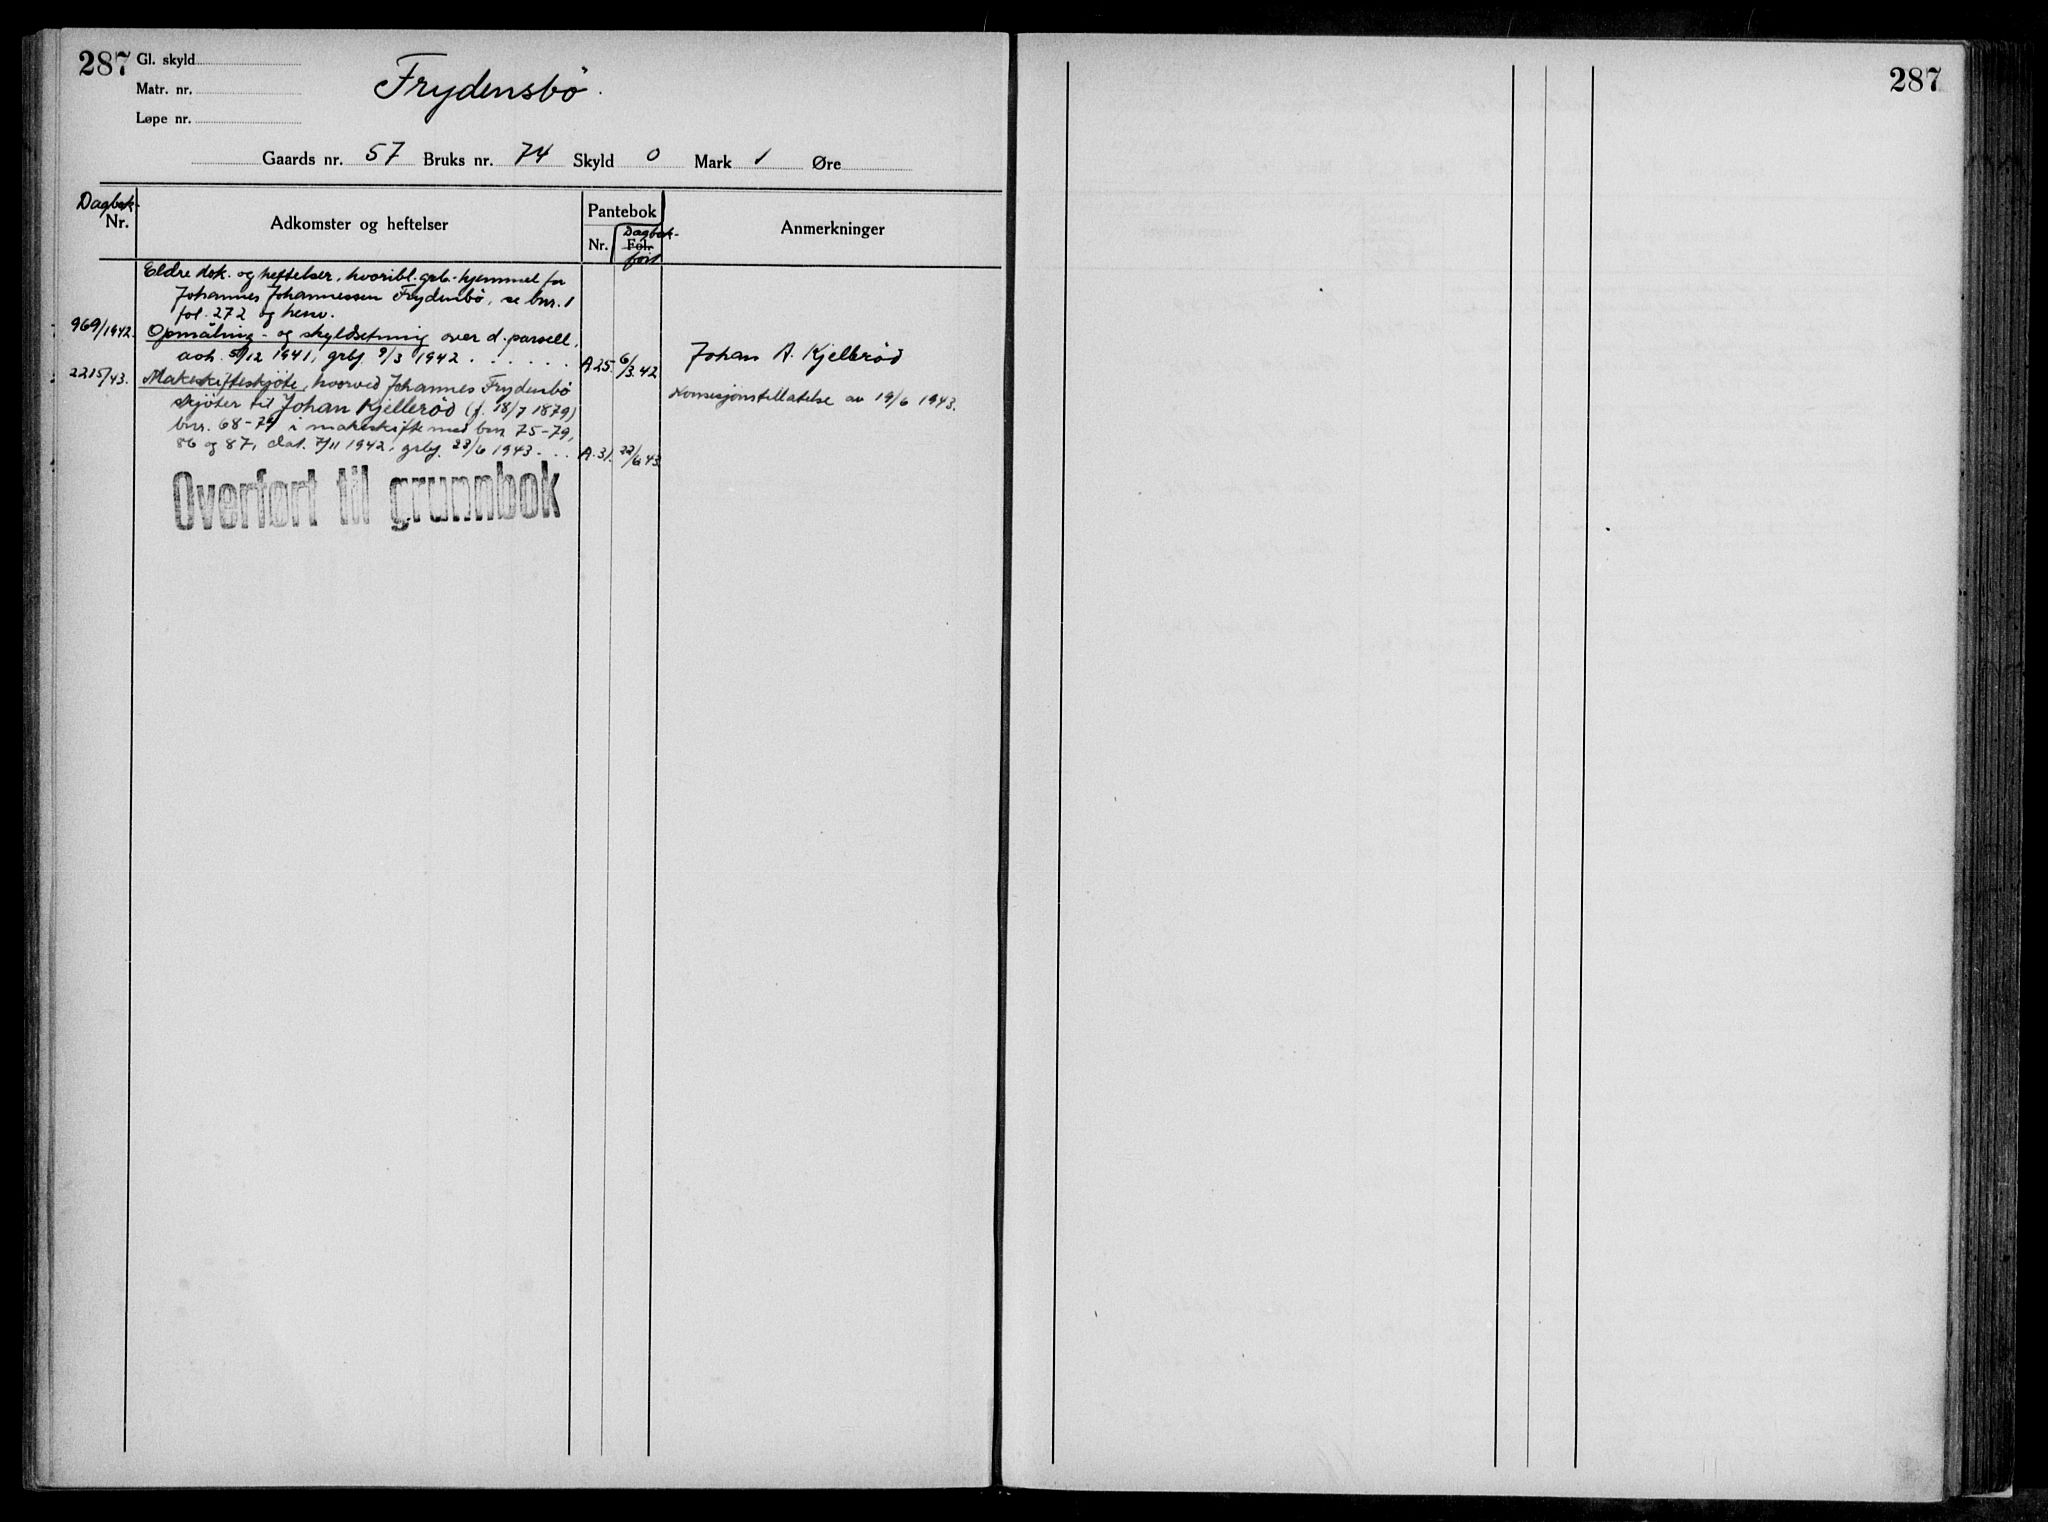 287
Gl. skyld
Matr. nr.
Løpe nr.
Frydensbö.
Gaards nr. 57 Bruks nr. 74 Skyld 0 Mark 1 Øre
Dagbok-
Nr.
Adkomster og heftelser
Pantebok
Nr.
Fol.
Dagbok-
ført
Anmerkninger
Eldre dok. og heftelser, hvoribl. grb. hjemmel for
Johannes Johannessen Frydenbö, se bnr. 1
fol. 272 og henv.
969/1942. Opmåling- og skyldsetning over d. parsell,
avh. 5/12 1941, grbj. 9/3 1942 . . . . . A 25. 6/3.42 Johan A. Kjellerød
2215/43. Makeskifteskjöte, hvorved Johannes Frydenbö
skjöter til Johan Kjelleröd (f. 18/7 1879) Konsesjonstillatelse av 19/6 1943.
bnr. 68-74 i makeskifte med bnr 75-79,
86 og 87, dat. 7/11 1942, grbj. 23/6 1943 . . . A. 31. 22/6 43.
Overført til grunnbok
287